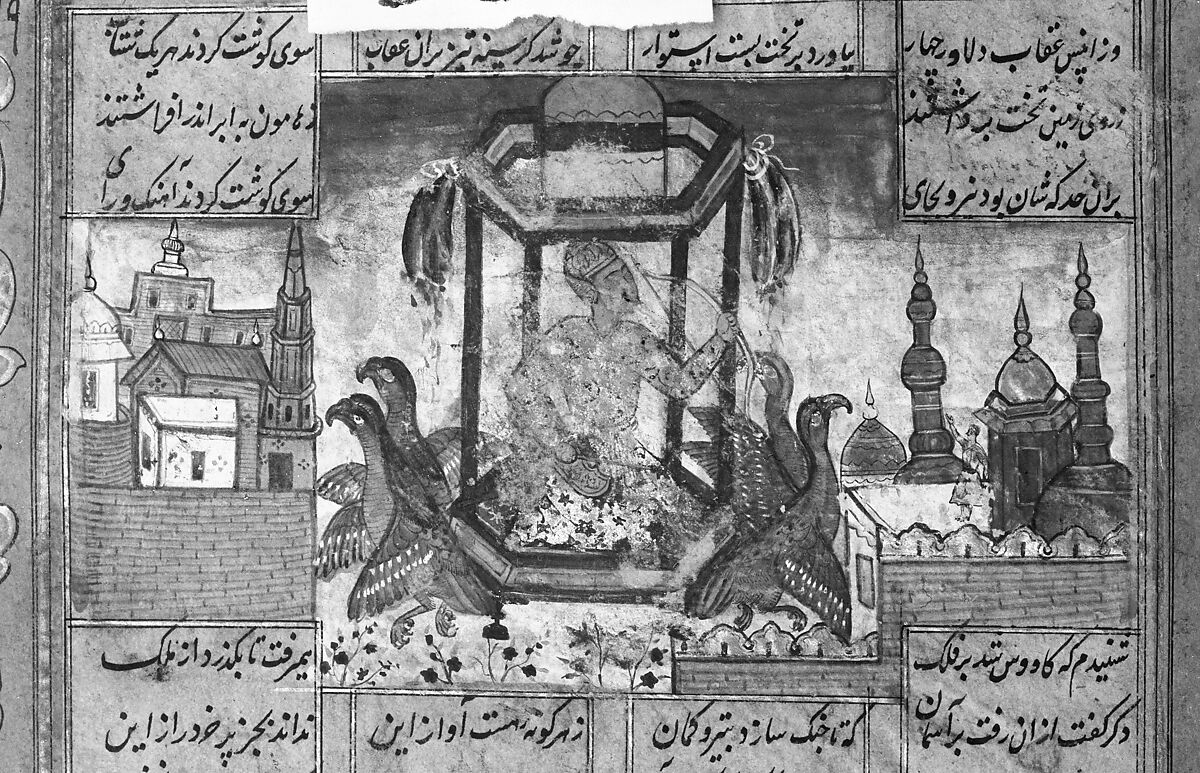 وزانپس عقاب دلاور چهار
بیاورد بر تخت بست استوار
چو شد گرسنه تیز پران عقاب
سوی گوشت کردند هر یک شتاب
ز روی زمین تخت برداشتند
ز هامون به ابر اندر افراشتند
بران حد که شان بود نیرو بجای
سوی گوشت کردند آهنگ و رای
شنیدم که کاووس شد بر فلک
همیرفت تا بگذرد از ملک
دگر گفت ازان رفت بر آسمان
که تا جنگ سازد بتیر و کمان
ز هر گونه هست آواز این
نداند بجز پر خرد راز این